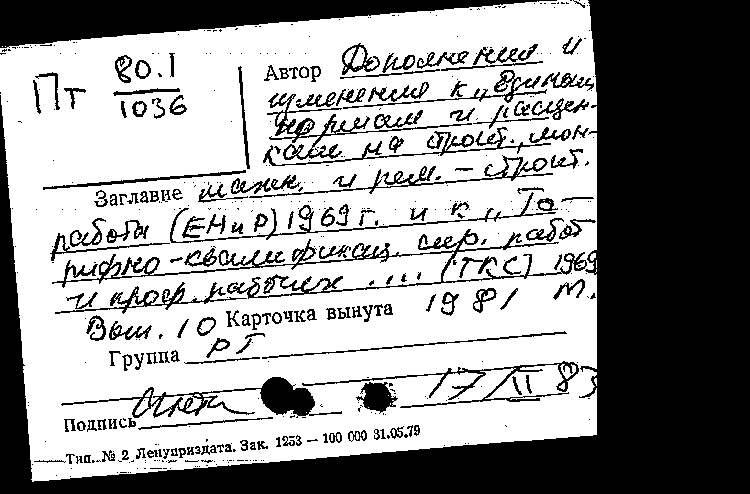 Пт 80.1
1036
Автор Дополнения и
изменения к „Единым
нормам и расцен-
кам на строит., мон-
Заглавие тажн. и рем. – строит.
работы (ЕНиР) 1969 г. и к „Та-
рифно-квалификац. спр. работ
и проф. рабочих ... (ТКС) 1969
Вып. 10 Карточка вынута 1981 М.
Группа РТ
17/II 83
Подпись
Тип. № 2 Ленуприздата. Зак. 1253 — 100 000 31.05.79